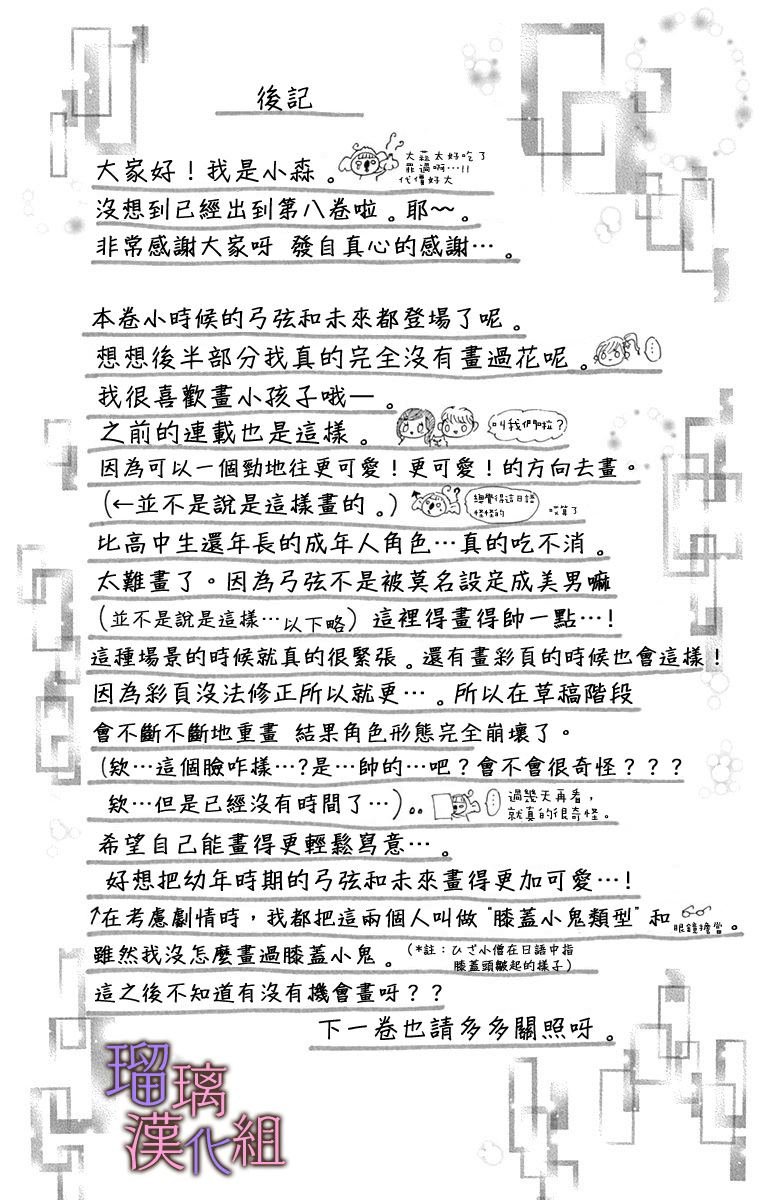 後記
大家好！我是小森。
大蒜太好吃了
罪過啊…!!
代價好大
沒想到已經出到第八卷啦。耶~~。
非常感謝大家呀 發自真心的感謝…。
本卷小時候的弓弦和未來都登場了呢。
想想後半部分我真的完全沒有畫過花呢。
…
我很喜歡畫小孩子哦—。
之前的連載也是這樣。
叫我們啦？
因為可以一個勁地往更可愛！更可愛！的方向去畫。
(←並不是說是這樣畫的。)
總覺得這日語
怪怪的
哎算了
比高中生還年長的成年人角色…真的吃不消。
太難畫了。因為弓弦不是被莫名設定成美男嘛
(並不是說是這樣…以下略) 這裡得畫得帥一點…!
這種場景的時候就真的很緊張。還有畫彩頁的時候也會這樣！
因為彩頁沒法修正所以就更…。所以在草稿階段
會不斷不斷地重畫 結果角色形態完全崩壞了。
(欸…這個臉咋樣…?是…帥的…吧？會不會很奇怪？？？
欸…但是已經沒有時間了…)。。
…
過幾天再看，
就真的很奇怪。
希望自己能畫得更輕鬆寫意…。
好想把幼年時期的弓弦和未來畫得更加可愛…!
↑在考慮劇情時，我都把這兩個人叫做"膝蓋小鬼類型"和
眼鏡擔當。
雖然我沒怎麼畫過膝蓋小鬼。
(*註：ひざ小僧在日語中指
膝蓋頭皺起的樣子)
這之後不知道有沒有機會畫呀？？
下一卷也請多多關照呀。
瑠璃
漢化組